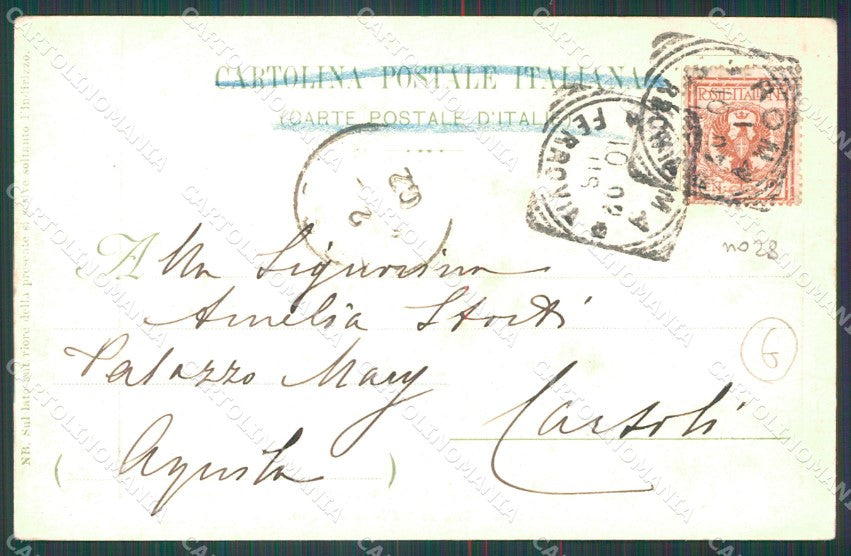 CARTOLINA POSTALE ITALIANA
(CARTE POSTALE D'ITALIE)
POSTE ITALIANE
ROMA
ROMA FERROVIA
10
02
2
02
no 28
Alla Signorina
Amelia Storti
Palazzo Mary
Carsoli
(Aquila)
G
NB. Sul lato anteriore della presente si scrive soltanto l'indirizzo.
CARTOLINOMANIA